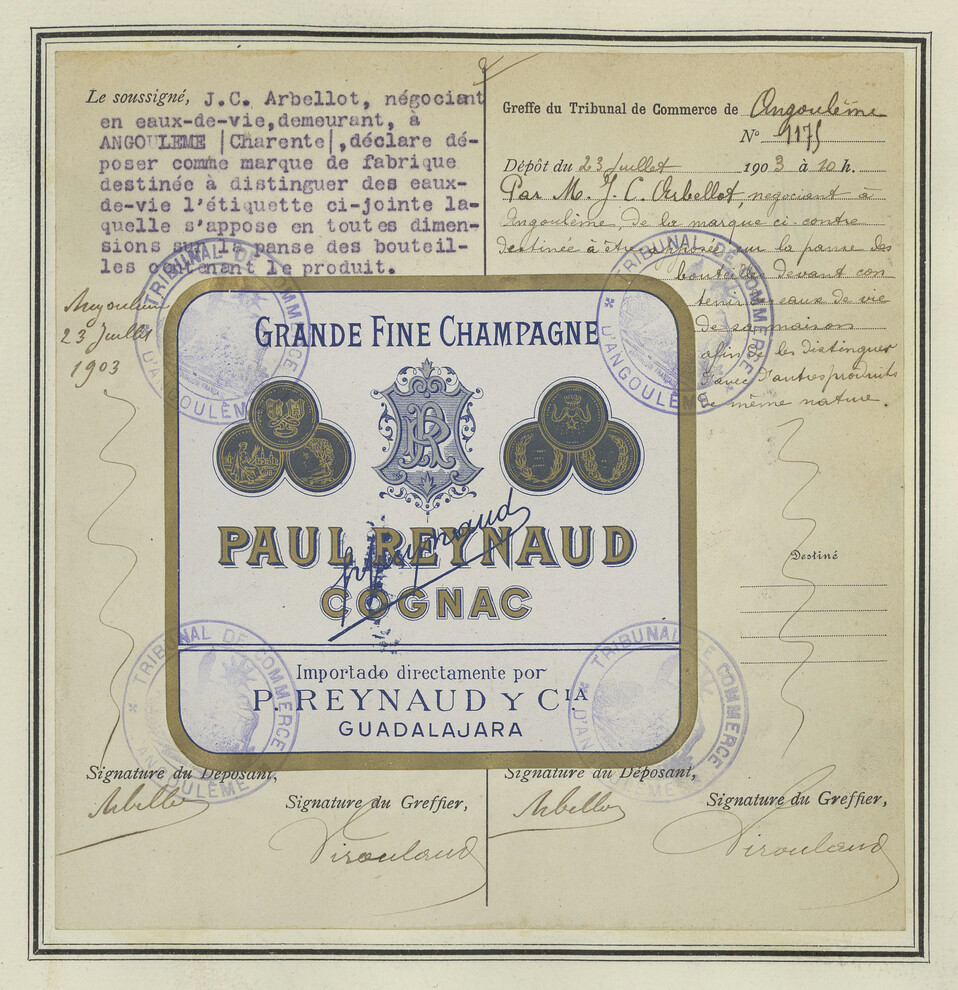 Le soussigné, J.C. Arbellot, négociant
en eaux-de-vie,demeurant, à
ANGOULEME |Charente|,déclare dé-
poser comme marque de fabrique
destinée à distinguer des eaux-
de-vie l'étiquette ci-jointe la-
quelle s'appose en toutes dimen-
sions sur la panse des bouteil-
les contenant le produit.
Angoulême
23 Juillet
1903
Greffe du Tribunal de Commerce de Angoulême
N° 1175
Dépôt du 23 Juillet 1903 à 10 h.
Par M. J. C. Arbellot, negociant à
Angoulême, de la marque ci-contre
destinée à être apposée sur la panse des
bouteilles devant con
tenir eaux de vie
de sa maison
afin de les distinguer
d'avec d'autres produits
de même nature.
Destiné
GRANDE FINE CHAMPAGNE
PR
PAUL REYNAUD
COGNAC
Importado directamente por
P. REYNAUD Y CIA
GUADALAJARA
TRIBUNAL DE COMMERCE D'ANGOULÊME
TRIBUNAL DE COMMERCE D'ANGOULÊME
TRIBUNAL DE COMMERCE D'ANGOULÊME
TRIBUNAL DE COMMERCE D'ANGOULÊME
Signature du Déposant,
Arbellot
Signature du Greffier,
Signature du Déposant,
Arbellot
Signature du Greffier,